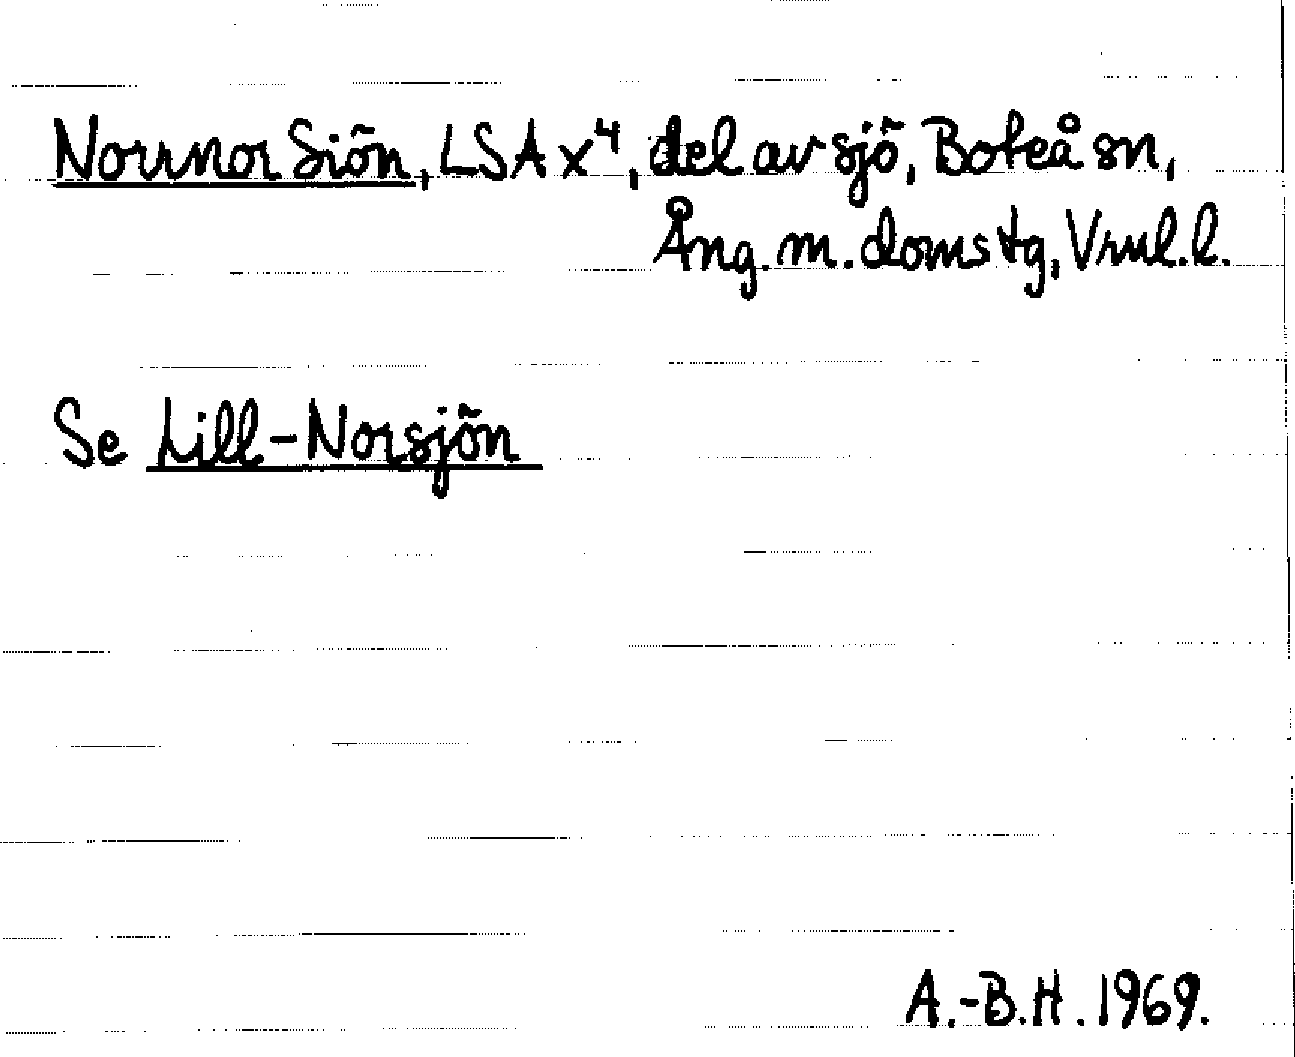 Norrnor Siön, LSA x⁴, del av sjö, Boteå sn,
Ång. m. domstg, Vrnl. l.
Se Lill-Norsjön
A.-B.H. 1969.